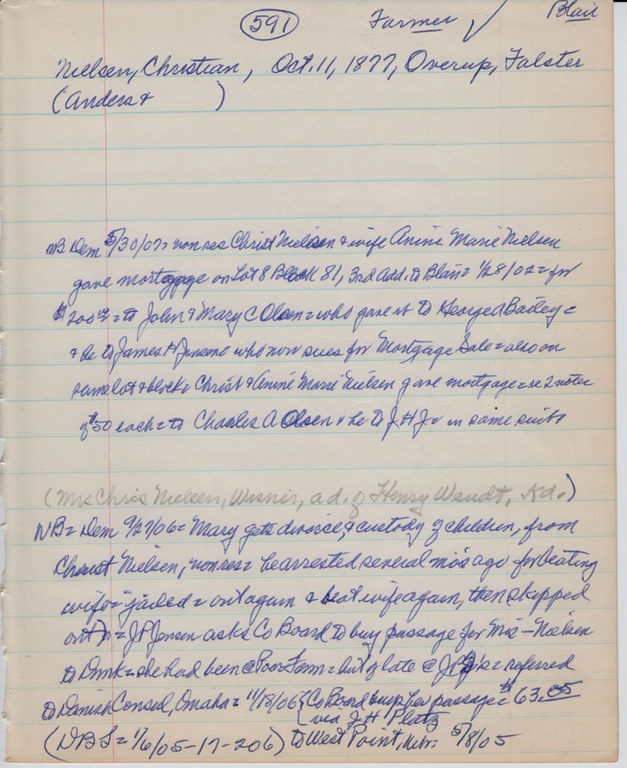 591 Farmer ✓ Blair
Nielsen, Christian, Oct. 11, 1877, Overup, Falster
(Anders & )
NB Dem 5/30/07= nonres Christ Nielsen & wife Anine Marie Nielsen
gave mortgage on Lot 8 Block 81, 3rd Add. to Blair= 1/28/02= for
$200= to John & Mary C Olsen= who gave it to George A Bailey=
& he to James H Jensen= who now sues for Mortgage Sale= also on
same lot & block= Christ & Anine Marie Nielsen gave mortgage= re 2 notes
of $50 each= to Charles A Olsen & he to J H J= in same suit
(Mrs Chris Nielsen, Wisner, a d. of Henry Wendt, Kd.)
NB= Dem 9/27/06= Mary gets divorce, & custody of children, from
Christ Nielsen, nonres= he arrested several mos ago for beating
wife= jailed= out again & beat wife again, then skipped
out= J H Jensen asks Co Board to buy passage for Mrs - Nielsen
to Dmk= she had been @ Poor Farm= but of late @ J H J's= referred
to Danish Consul, Omaha= 11/15/06 { Co Board buys her passage= $63.05
{ via J H Platz
(DBS= 1/6/05-17-206) to West Point, Nebr. 5/8/05